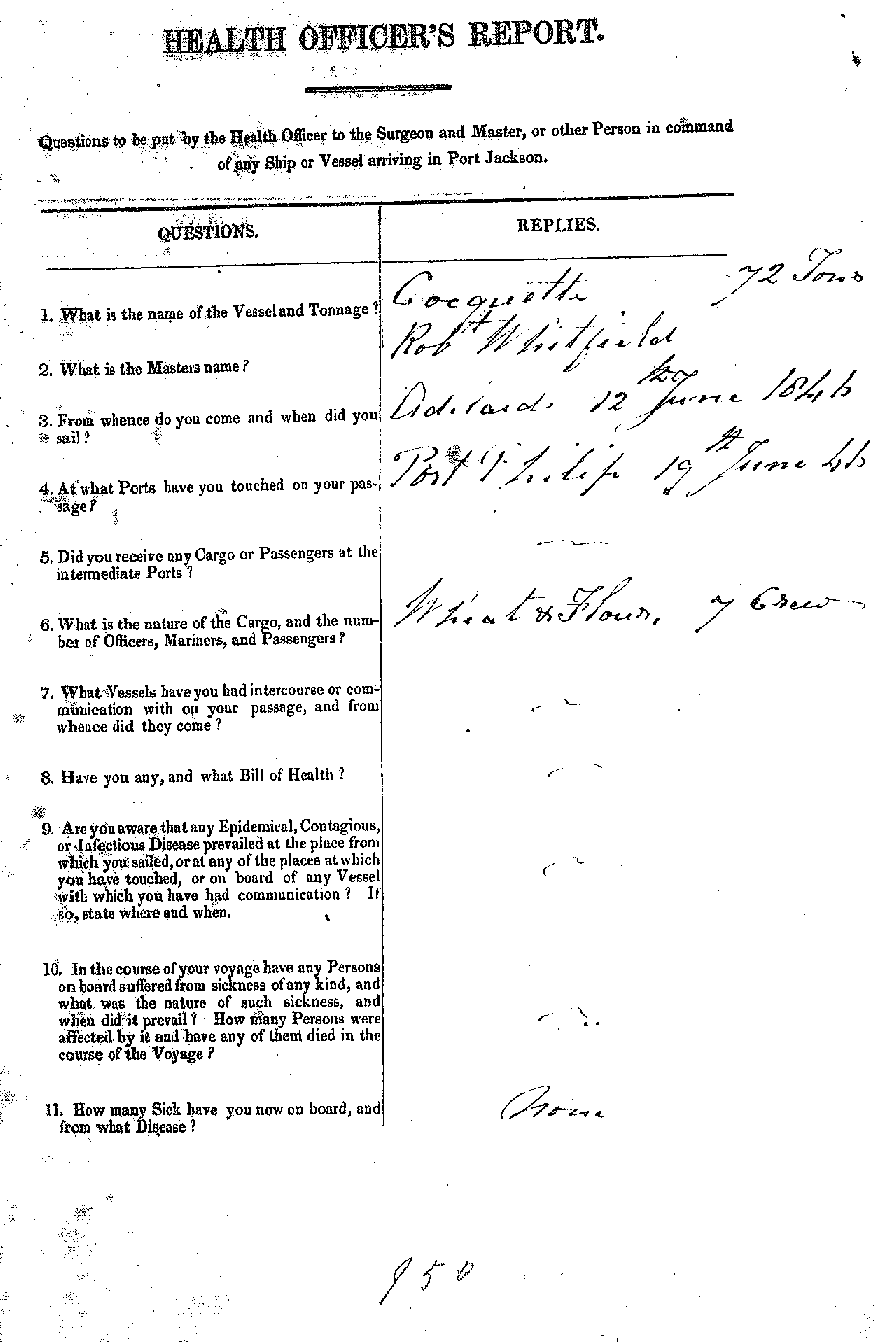 HEALTH OFFICER'S REPORT.
Questions to be put by the Health Officer to the Surgeon and Master, or other Person in command
of any Ship or Vessel arriving in Port Jackson.
QUESTIONS.
REPLIES.
1. What is the name of the Vessel and Tonnage?
Cocquette 72 Tons
2. What is the Masters name?
Robt Whitfield
3. From whence do you come and when did you
sail?
Adelaide 12th June 1846
4. At what Ports have you touched on your pas-
sage?
Port Philip 19th June 46
5. Did you receive any Cargo or Passengers at the
intermediate Ports?
—
6. What is the nature of the Cargo, and the num-
ber of Officers, Mariners, and Passengers?
Wheat & Flour, 7 Crew
7. What Vessels have you had intercourse or com-
munication with on your passage, and from
whence did they come?
8. Have you any, and what Bill of Health?
9. Are you aware that any Epidemical, Contagious,
or Infectious Disease prevailed at the place from
which you sailed, or at any of the places at which
you have touched, or on board of any Vessel
with which you have had communication? If
so, state where and when.
10. In the course of your voyage have any Persons
on board suffered from sickness of any kind, and
what was the nature of such sickness, and
when did it prevail? How many Persons were
affected by it and have any of them died in the
course of the Voyage?
11. How many Sick have you now on board, and
from what Disease?
None
950